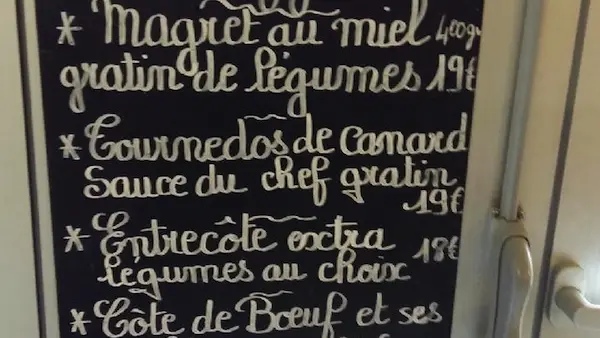 * Magret au miel 400gr
gratin de légumes 19€
* Tournedos de Canard
Sauce du chef gratin
19€
* Entrecôte extra 18€
légumes au choix
* Côte de Bœuf et ses